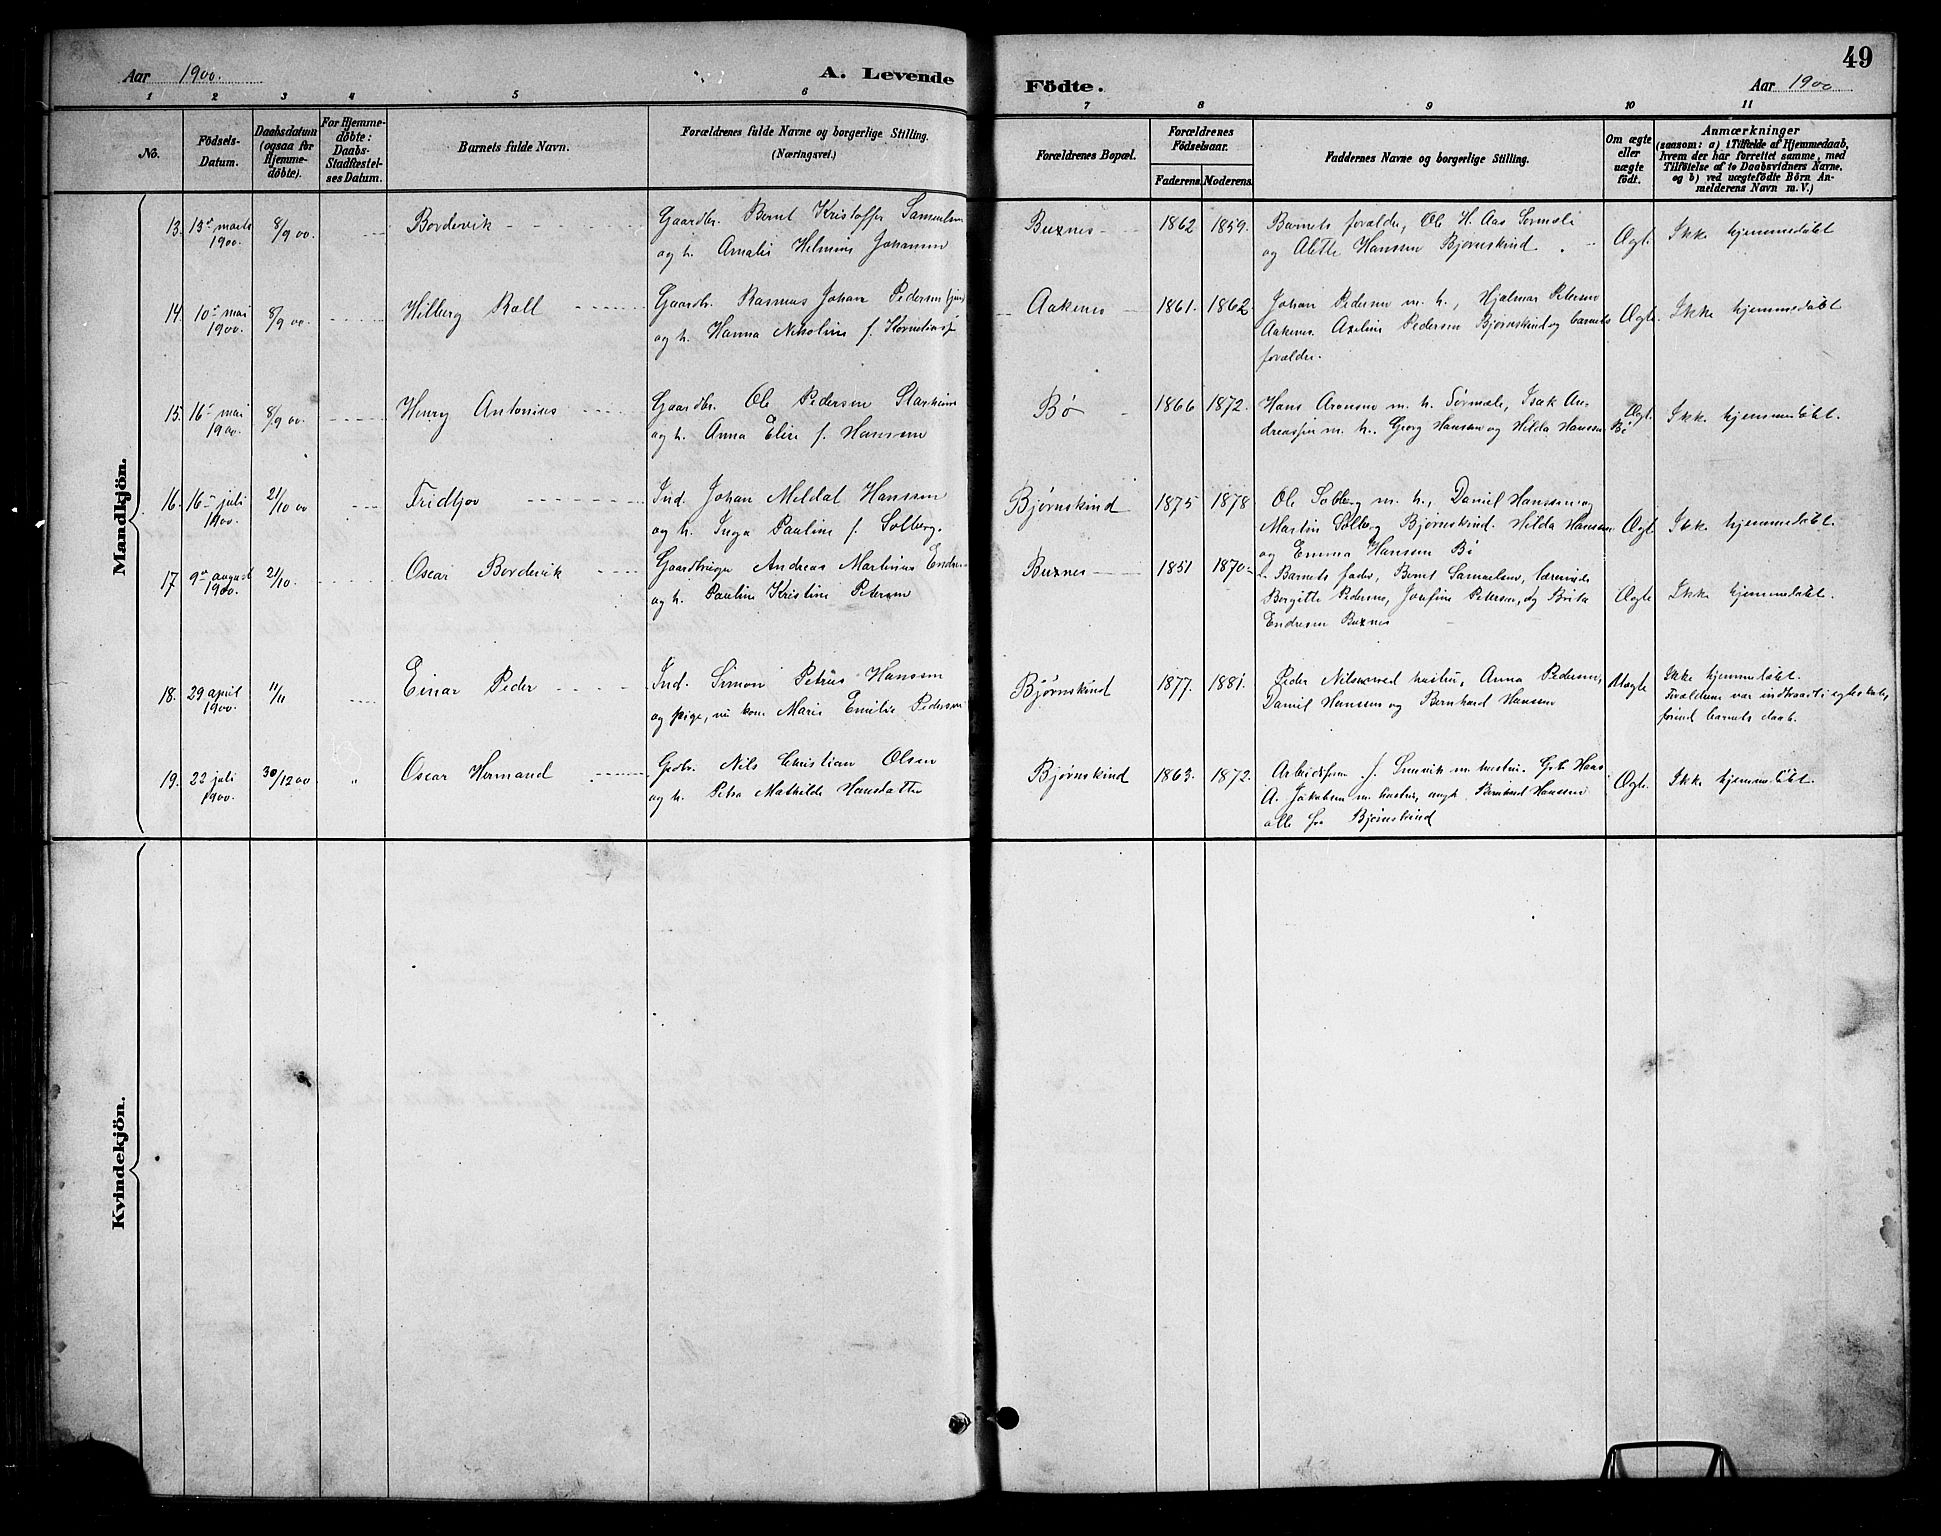 49
Aar 1900.
A. Levende Födte.
Aar 1900
1 2 3 4 5 6 7 8 9 10 11
No.
Födsels-
Datum.
Daabsdatum
(ogsaa for
Hjemme-
döbte).
For Hjemme-
döbte:
Daabs-
Stadfæstel-
ses Datum.
Barnets fulde Navn.
Forældrenes fulde Navne og borgerlige Stilling.
(Næringsvei.)
Forældrenes Bopæl.
Forældrenes
Födselsaar.
Faderens. Moderens.
Faddernes Navne og borgerlige Stilling.
Om ægte
eller
uægte
födt.
Anmærkninger
(saasom: a) i Tilfælde af Hjemmedaab,
hvem der har forrettet samme, med
Tilföielse af to Daabsvidners Navne,
og b) ved uægtefödte Börn An-
melderens Navn m. V.)
Mandkjön.
13. 13de marts
1900.
8/9 00.
Bordevik
Gaardbr. Bernt Kristoffer Samuelsen
og h. Amalie Helmine Johansen
Buxnes
1862 1859.
Barnets forældre, Ole H. Aas Sørmeli
og Alette Hansen Bjørnskind
Ægte
Ikke hjemmedøbt
14. 10de mai
1900.
8/9 00.
Hilberg Rall
Gaardbr. Rasmus Johan Pedersen
og h. Hanna Nikoline f. Korneliusd.
Aakenes
1861. 1862.
Johan Pedersen m. h., Hjalmar Petersen
Aakenes. Axeline Pedersen Bjørnskind og barnets
forældre.
Ægte.
Ikke hjemmedøbt
15. 16de mai
1900.
8/9 00.
Henry Antonius
Gaardbr. Ole Pedersen Starheim
og h. Anna Elise f. Hansen
Bø
1866 1872.
Hans Aronsen m. h. Sørmæle, Isak An-
dreassen m. h. Georg Hansen og Hilda Hansen Bø
Ægte.
Ikke hjemmedøbt.
16. 16de juli
1900.
21/10 00
Fridtjov
Ind. Johan Meldal Hansen
og h. Inga Pauline f. Solberg.
Bjørnskind
1875 1878
Ole Solberg m. h., Daniel Hanssen og
Martin Solberg Bjørnskind. Hilda Hansen
og Emma Hansen Bø
Ægte
Ikke hjemmedøbt.
17 9de august
1900.
21/10.
Oscar Bordevik
Gaardbruger Andreas Martinus Endre-
og h. Pauline Kristine Petersen
Buxnes
1851 1870
Barnets fader, Bernt Samuelsen, lærerinde
Bergitte Pedersen, Josefine Petersen, og Brita
Endresen Buxnes
Ægte
Ikke hjemmedøbt.
18. 29 april
1900.
11/11
Einar Peder
Ind. Simon Petrus Hansen
og pige, nu kone Marie Emilie Pedersen
Bjørnskind
1877. 1881.
Peder Nilsen ved hustru, Anna Pedersen,
Daniel Hansen og Bernhard Hansen
Uægte
Ikke hjemmedøbt.
Forældrene var indtraadt i egteskab,
førend barnets daab.
19. 22 juli
1900.
30/12 00
"
Oscar Hermand
Grdbr. Nils Christian Olsen
og h. Petra Mathilde Hansdatter
Bjørnskind
1863. 1872.
Arbeidsform. J. m. hustru. Grb. Hans
A. Jakobsen m. hustru, ungk. Bernhard Hansen
alle fra Bjørnskind
Ægte.
Ikke hjemmedøbt.
Kvindekjön.